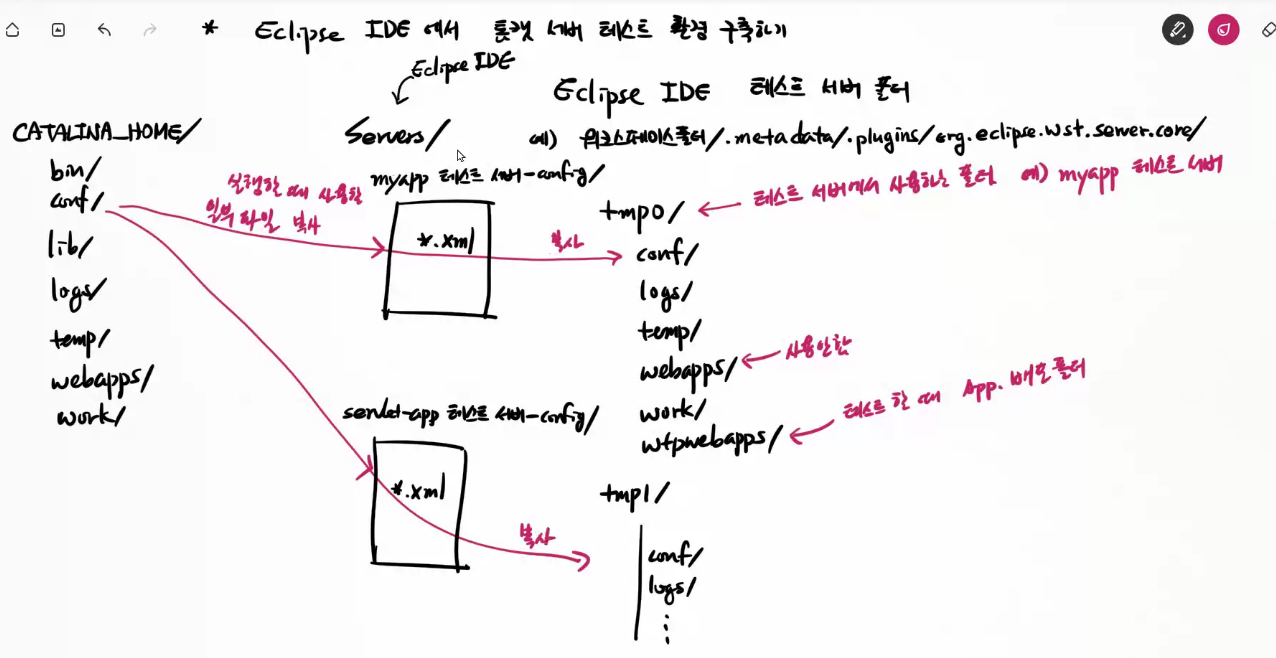 * Eclipse IDE 에서 톰캣 서버 테스트 환경 구축하기
Eclipse IDE
Eclipse IDE 테스트 서버 폴더
CATALINA_HOME/
Servers/
예) 워크스페이스폴더/.metadata/.plugins/org.eclipse.wst.server.core/
bin/
conf/
lib/
logs/
temp/
webapps/
work/
실행할 때 사용할
일부 파일 복사
myapp 테스트 서버-config/
*.xml
복사
servlet-app 테스트 서버-config/
*.xml
복사
tmp0/
테스트 서버에서 사용하는 폴더 예) myapp 테스트 서버
conf/
logs/
temp/
webapps/
사용안함
work/
wtpwebapps/
테스트 할 때 App. 배포 폴더
tmp1/
conf/
logs/
⋮